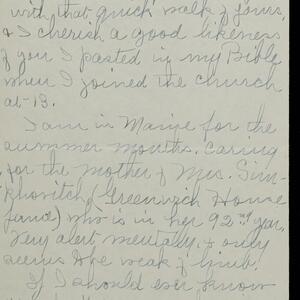 with that quick walk of yours,
& I cherish a good likeness
of you I pasted in my Bible
when I joined the church
at 13.
I am in Maine for the
summer months. Caring
for the mother of Mrs. Sim-
khovitch (Greenwich House
fame) who is in her 92nd year.
Very alert mentally, & only
seems to be weak of limb.
If I should ever know